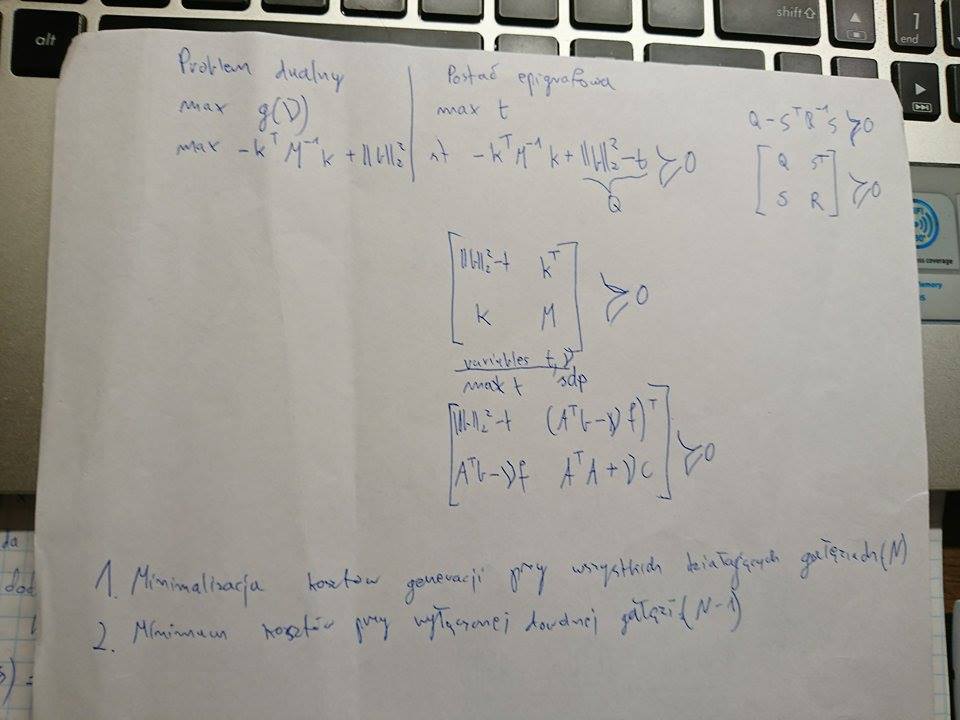 alt
shift⇧
end
Problem dualny
max g(ν)
max -k^T M^-1 k + ||b||_2^2
Postać epigrafowa
max t
st -k^T M^-1 k + ||b||_2^2 - t ≽ 0
Q
Q - S^T R^-1 S ≽ 0
[Q S^T
S R] ≽ 0
[||b||_2^2 - t k^T
k M] ≽ 0
variables t, ν
max t sdp
[||b||_2^2 - t (A^T b - ν f)^T
A^T b - ν f A^T A + ν C] ≽ 0
1. Minimalizacja kosztów generacji przy wszystkich działających gałęziach (N)
2. Minimum kosztów przy wyłączonej dowolnej gałęzi (N-1)